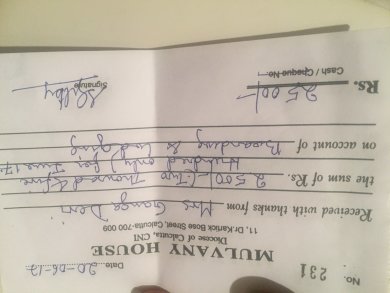 No. 231 Date 20-06-17
MULVANY HOUSE
Diocese of Calcutta, CNI
11, Dr. Karick Bose Street, Calcutta-700 009
Received with thanks from Mrs Ganga Devi
the sum of Rs. 2500/- (Two Thousand five
Hundred only) for June 17
on account of Boarding & Lodging
Rs. 2500/-
Cash / Cheque No.
Signature